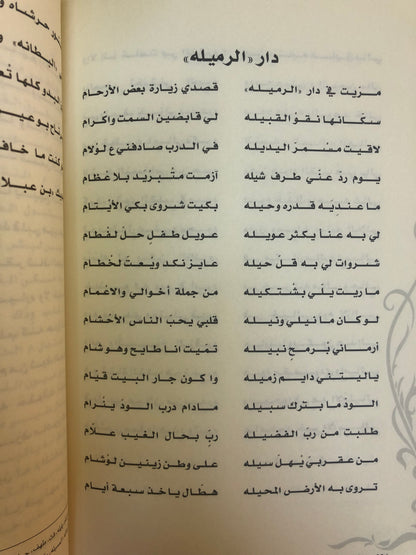 دار «الرميله»
مزيت في دار «الرميله» قصدي زيارة بعض الأرحام
سكانها نقوة القبيله لي قابضين السمت واكرام
لاقيت مسمر البديله في الدرب صادفني ع لولام
يوم رد عني طرف شيله آزمت متبريد بلا عظام
ما عنديه قدره وحيله بكيت شروى بكي الأيتام
لي به عنا يكثر عويله عويل طفل حل لفطام
شروات لي به قل حيله عايز نكد ويعت لخطام
ما ريت يلي بشتكيله من جملة أخوالي والاعمام
لو كان ما نيلي ونيله قلبي يحب الناس الأحشام
أرماني برمح نبيله تميت انا طايح وهو شام
ياليتني دايم زميله وا كون جار البيت قيام
الود ما بترك سبيله مادام درب الود ينرام
طلبت من رب الفضيله رب بحال الغيب علام
من عقربي يهل سيله على وطن زينين لوشام
تروى به الأرض المحيله هطال ياخذ سبعة أيام